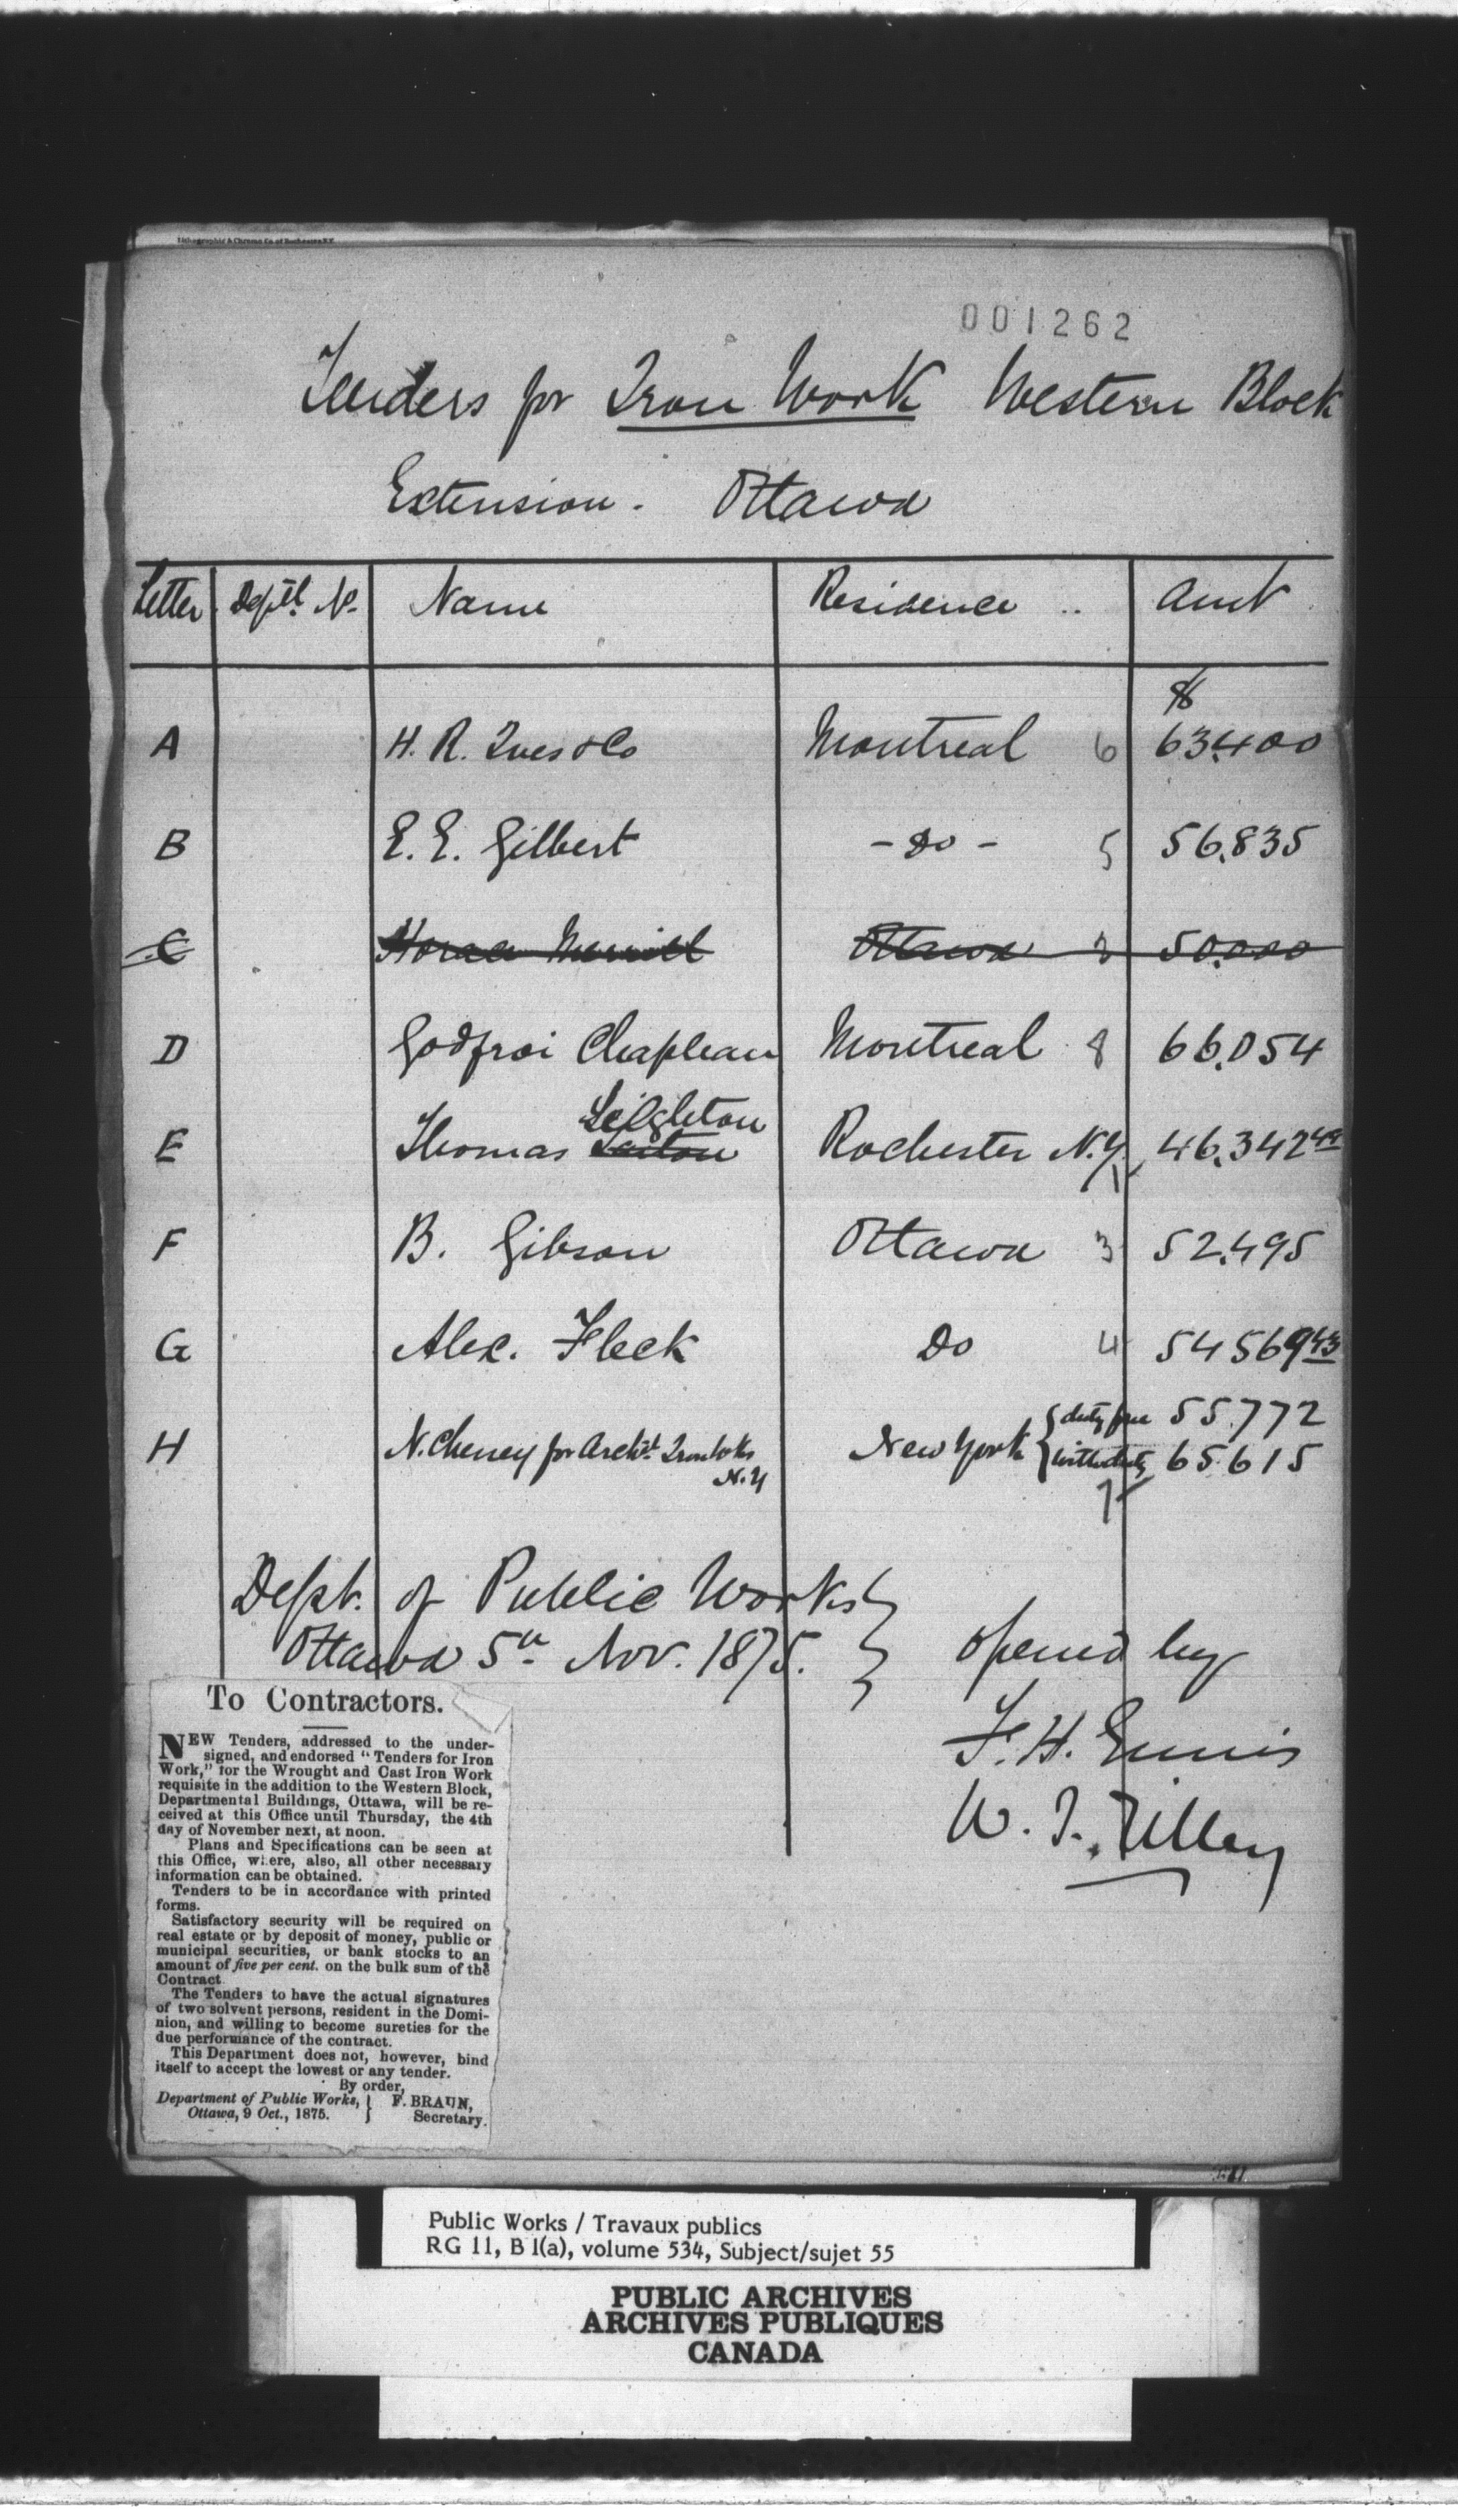 Lithographic & Chromo Co. of Rochester N.Y.
001262
Tenders for Iron Work Western Block
Extension. Ottawa
Letter Dept'l No. Name Residence .. Amt
$
A H. R. Ives & Co Montreal 6 63,400
B E. E. Gilbert - do - 5 56,835
C Horace Merrill Ottawa 2 50,000
D Godfroi Chapleau Montreal 8 66,054
Leighton
E Thomas Rochester N.Y. 1 46,342
F B. Gibson Ottawa 3 52,495
G Alex. Fleck Do 4 54 569 43
H N. Cheney for Archt'l Iron Wks New York { duty free 55,772
N.Y { with duty 65 615
7
Dept. of Public Works }
Ottawa 5th Nov. 1875. } Opened by
F. H. Ennis
W. T. Tilley
To Contractors.
NEW Tenders, addressed to the under-
signed, and endorsed "Tenders for Iron
Work," for the Wrought and Cast Iron Work
requisite in the addition to the Western Block,
Departmental Buildings, Ottawa, will be re-
ceived at this Office until Thursday, the 4th
day of November next, at noon.
Plans and Specifications can be seen at
this Office, where, also, all other necessary
information can be obtained.
Tenders to be in accordance with printed
forms.
Satisfactory security will be required on
real estate or by deposit of money, public or
municipal securities, or bank stocks to an
amount of five per cent. on the bulk sum of the
Contract
The Tenders to have the actual signatures
of two solvent persons, resident in the Domi-
nion, and willing to become sureties for the
due performance of the contract.
This Department does not, however, bind
itself to accept the lowest or any tender.
By order,
Department of Public Works, } F. BRAUN,
Ottawa, 9 Oct., 1875. } Secretary.
Public Works / Travaux publics
RG 11, B 1(a), volume 534, Subject/sujet 55
PUBLIC ARCHIVES
ARCHIVES PUBLIQUES
CANADA